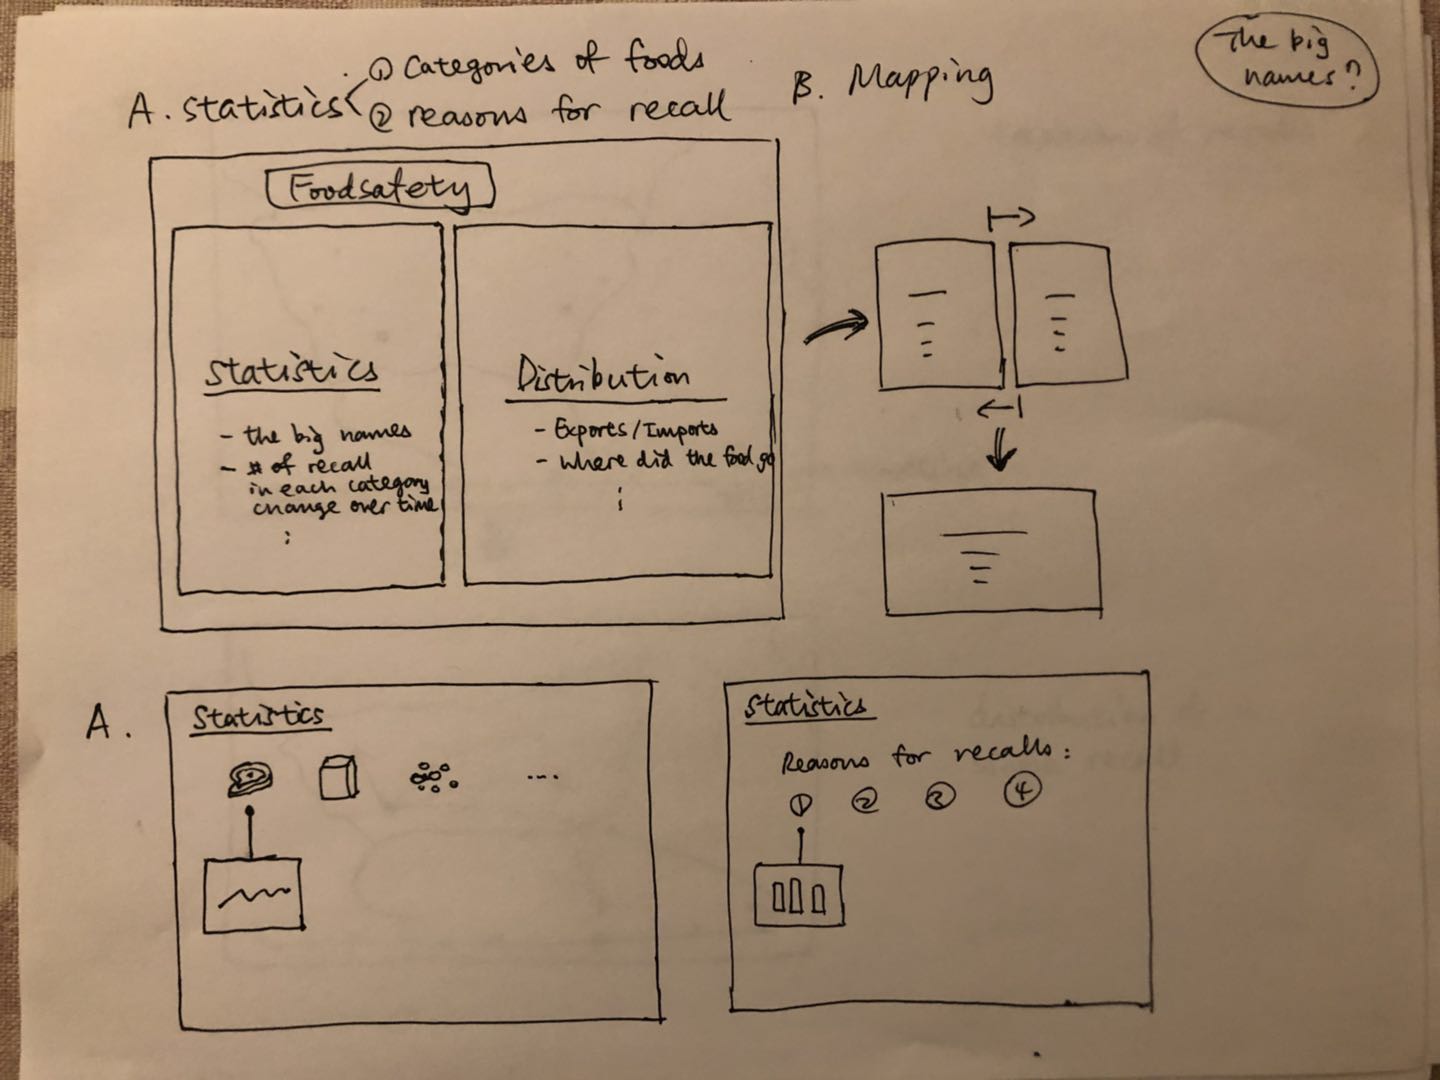 The big
names?
① Categories of foods
A. statistics
② reasons for recall
B. Mapping
Foodsafety
Statistics
- the big names
- # of recall
in each category
change over time
Distribution
- Exports/Imports
- where did the food go
A.
Statistics
....
Statistics
Reasons for recalls:
① ② ③ ④